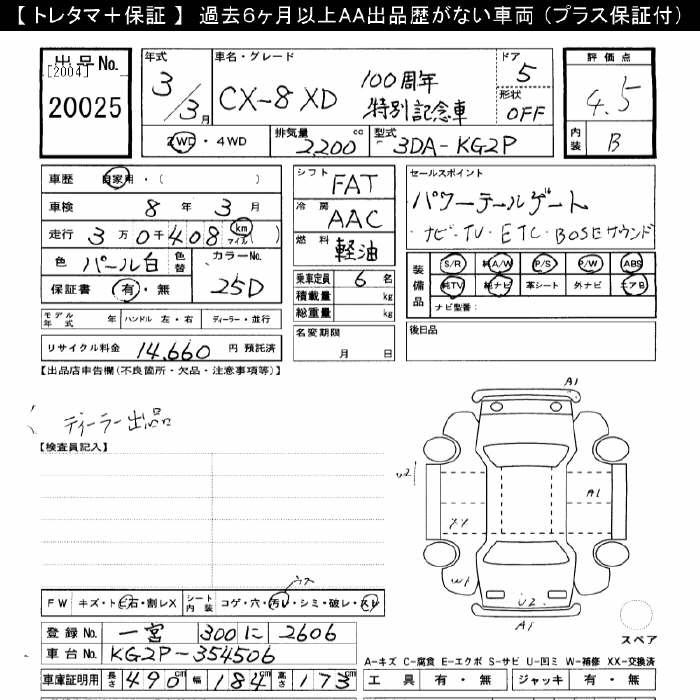 【 トレタマ＋保証 】 過去6ヶ月以上AA出品歴がない車両 （プラス保証付）
出品No.
[2004]
20025
年式
3/3月
車名・グレード
CX-8 XD 100周年
特別記念車
ドア
5
形状
OFF
評価点
4.5
内装
B
2WD・4WD
排気量
2,200 cc
型式
3DA-KG2P
車歴 自家用・( )
車検 8年 3月
走行 3万0千408 km マイル( )
色 パール白 色替
カラーNo.
25D
保証書 有・無
モデル年式 年 ハンドル 左・右 ディーラー・並行
リサイクル料金 14,660 円 預託済
シフト FAT
冷房 AAC
燃料 軽油
乗車定員 6 名
積載量 kg
総重量 kg
名変期限
月 日
セールスポイント
パワーテールゲート
ナビ・TV・ETC・BOSEサウンド
装備品
S/R 純A/W P/S P/W ABS
純TV 純ナビ 革シート 外ナビ エアB
ナビ型番:
後日品
【出品店申告欄(不良箇所・欠品・注意事項等)】
ディーラー出品
【検査員記入】
A1
U2
A1
XX
W1
U2
A1
スペア
FW キズ・トビ石・割レX
シート内装 コゲ・穴・汚レ・シミ・破レ・スレ
登録No. 一宮 300 に 2606
車台No. KG2P-354506
車庫証明用 長さ 490cm 幅 184cm 高さ 173cm
A-キズ C-腐食 E-エクボ S-サビ U-凹ミ W-補修 XX-交換済
工具 有・無 ジャッキ 有・無